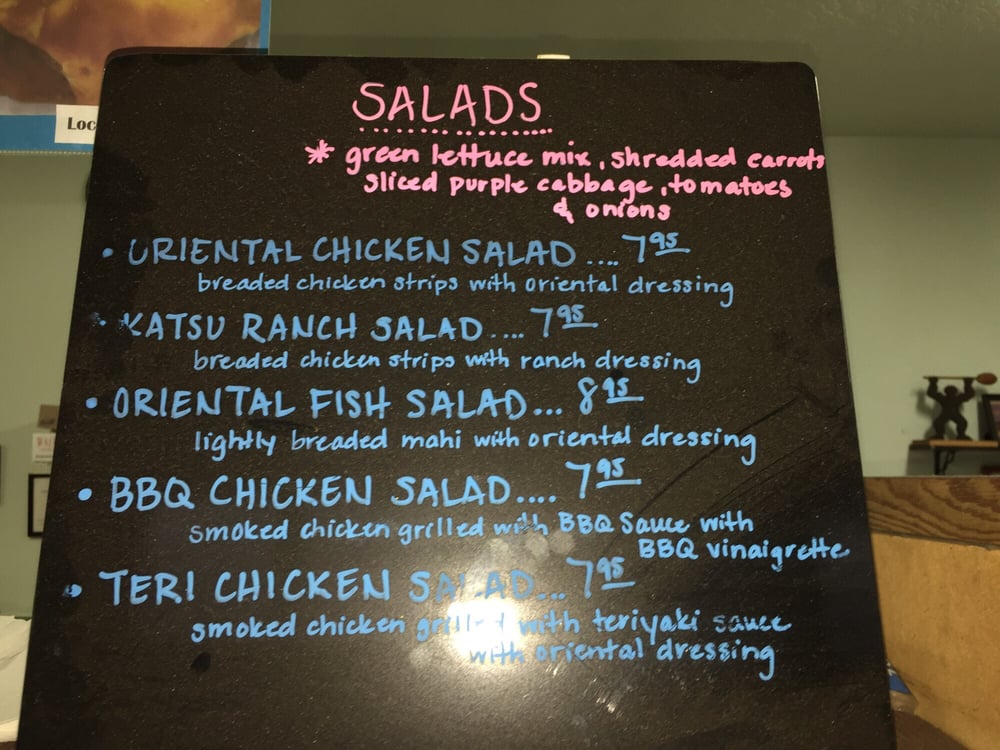 Loc
SALADS
* green lettuce mix, shredded carrots
sliced purple cabbage, tomatoes
& onions
• ORIENTAL CHICKEN SALAD .... 7.95
breaded chicken strips with oriental dressing
• KATSU RANCH SALAD .... 7.95
breaded chicken strips with ranch dressing
• ORIENTAL FISH SALAD... 8.95
lightly breaded mahi with oriental dressing
• BBQ CHICKEN SALAD.... 7.95
smoked chicken grilled with BBQ Sauce with
BBQ vinaigrette
• TERI CHICKEN SALAD... 7.95
smoked chicken grilled with teriyaki sauce
with oriental dressing